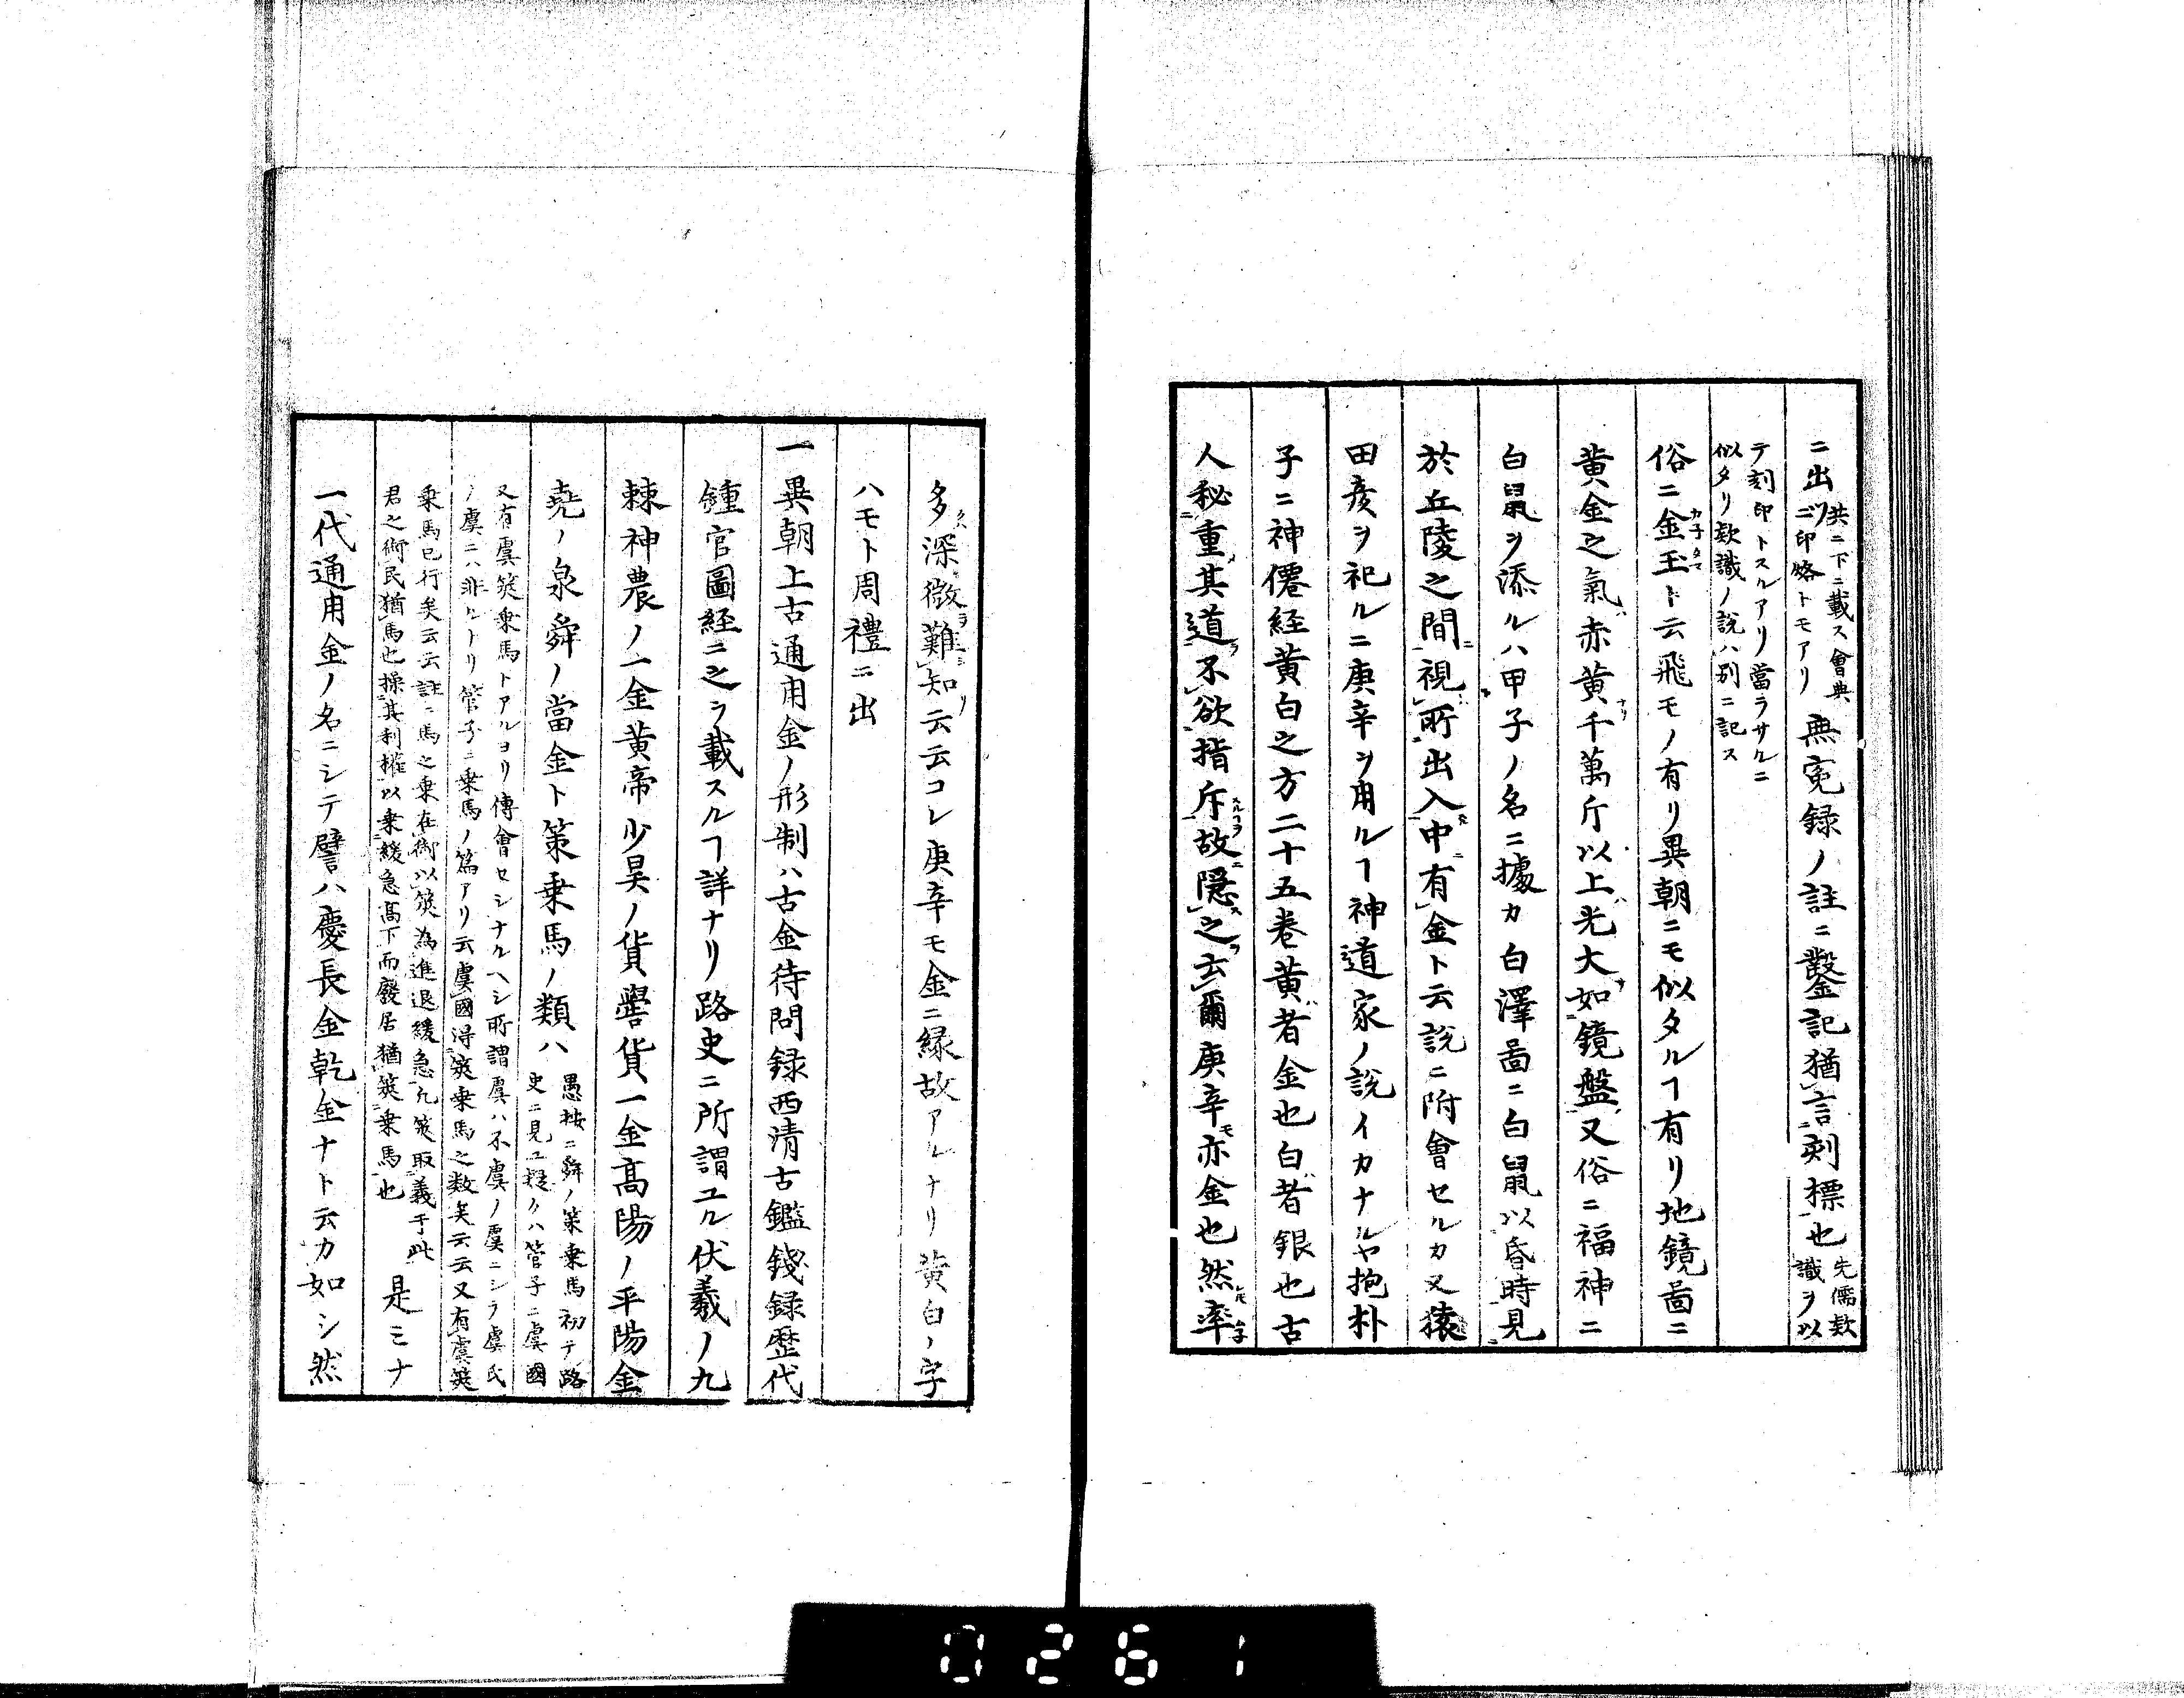 ニ出ツ共ニ下ニ載ス會典ニ印烙トモアリ無冤録ノ註ニ鑿記猶言刻標也先儒款識ヲ以
テ刻印トスルアリ當ラサルニ
似タリ款識ノ説ハ別ニ記ス
俗ニ金玉ト云飛モノ有リ異朝ニモ似タルヿ有リ地鏡啚ニ
黄金之氣赤黄千萬斤以上光大如鏡盤又俗ニ福神ニ
白鼠ヲ添ルハ甲子ノ名ニ據カ白澤啚ニ白鼠以昏時見
於丘陵之間視所出入中有金ト云説ニ附會セルカ又猿
田彦ヲ祀ルニ庚辛ヲ用ルヿ神道家ノ説イカナルヤ抱朴
子ニ神僊経黄白之方二十五巻黄者金也白者銀也古
人秘重其道不欲指斥故隠之云爾庚辛亦金也然率
多深微難知云云コレ庚辛モ金ニ縁故アルナリ黄白ノ字
ハモト周禮ニ出
一異朝上古通用金ノ形制ハ古金待問録西清古鑑錢録歴代
鍾官圖経ニ之ヲ載スルヿ詳ナリ路史ニ所謂ユル伏羲ノ九
棘神農ノ一金黄帝少昊ノ貨嚳貨一金髙陽ノ平陽金
堯ノ泉舜ノ當金ト策乗馬ノ類ハ愚按ニ舜ノ策乗馬初テ路史ニ見ユ疑クハ管子ニ虞國
又有虞筴乗馬トアルヨリ傳會セシナルヘシ所謂虞ハ不虞ノ虞ニシテ虞氏
ノ虞ニハ非ルナリ管子ニ乗馬ノ篇アリ云虞國得筴乗馬之数矣云云又有虞筴
乗馬已行矣云云註ニ馬之乗在御以筴為進退緩急凡筴取義于此
君之御民猶馬也操其利權以乗緩急髙下而廢居猶筴乗馬也是ミナ
一代通用金ノ名ニシテ譬ハ慶長金乾金ナト云カ如シ然
0261